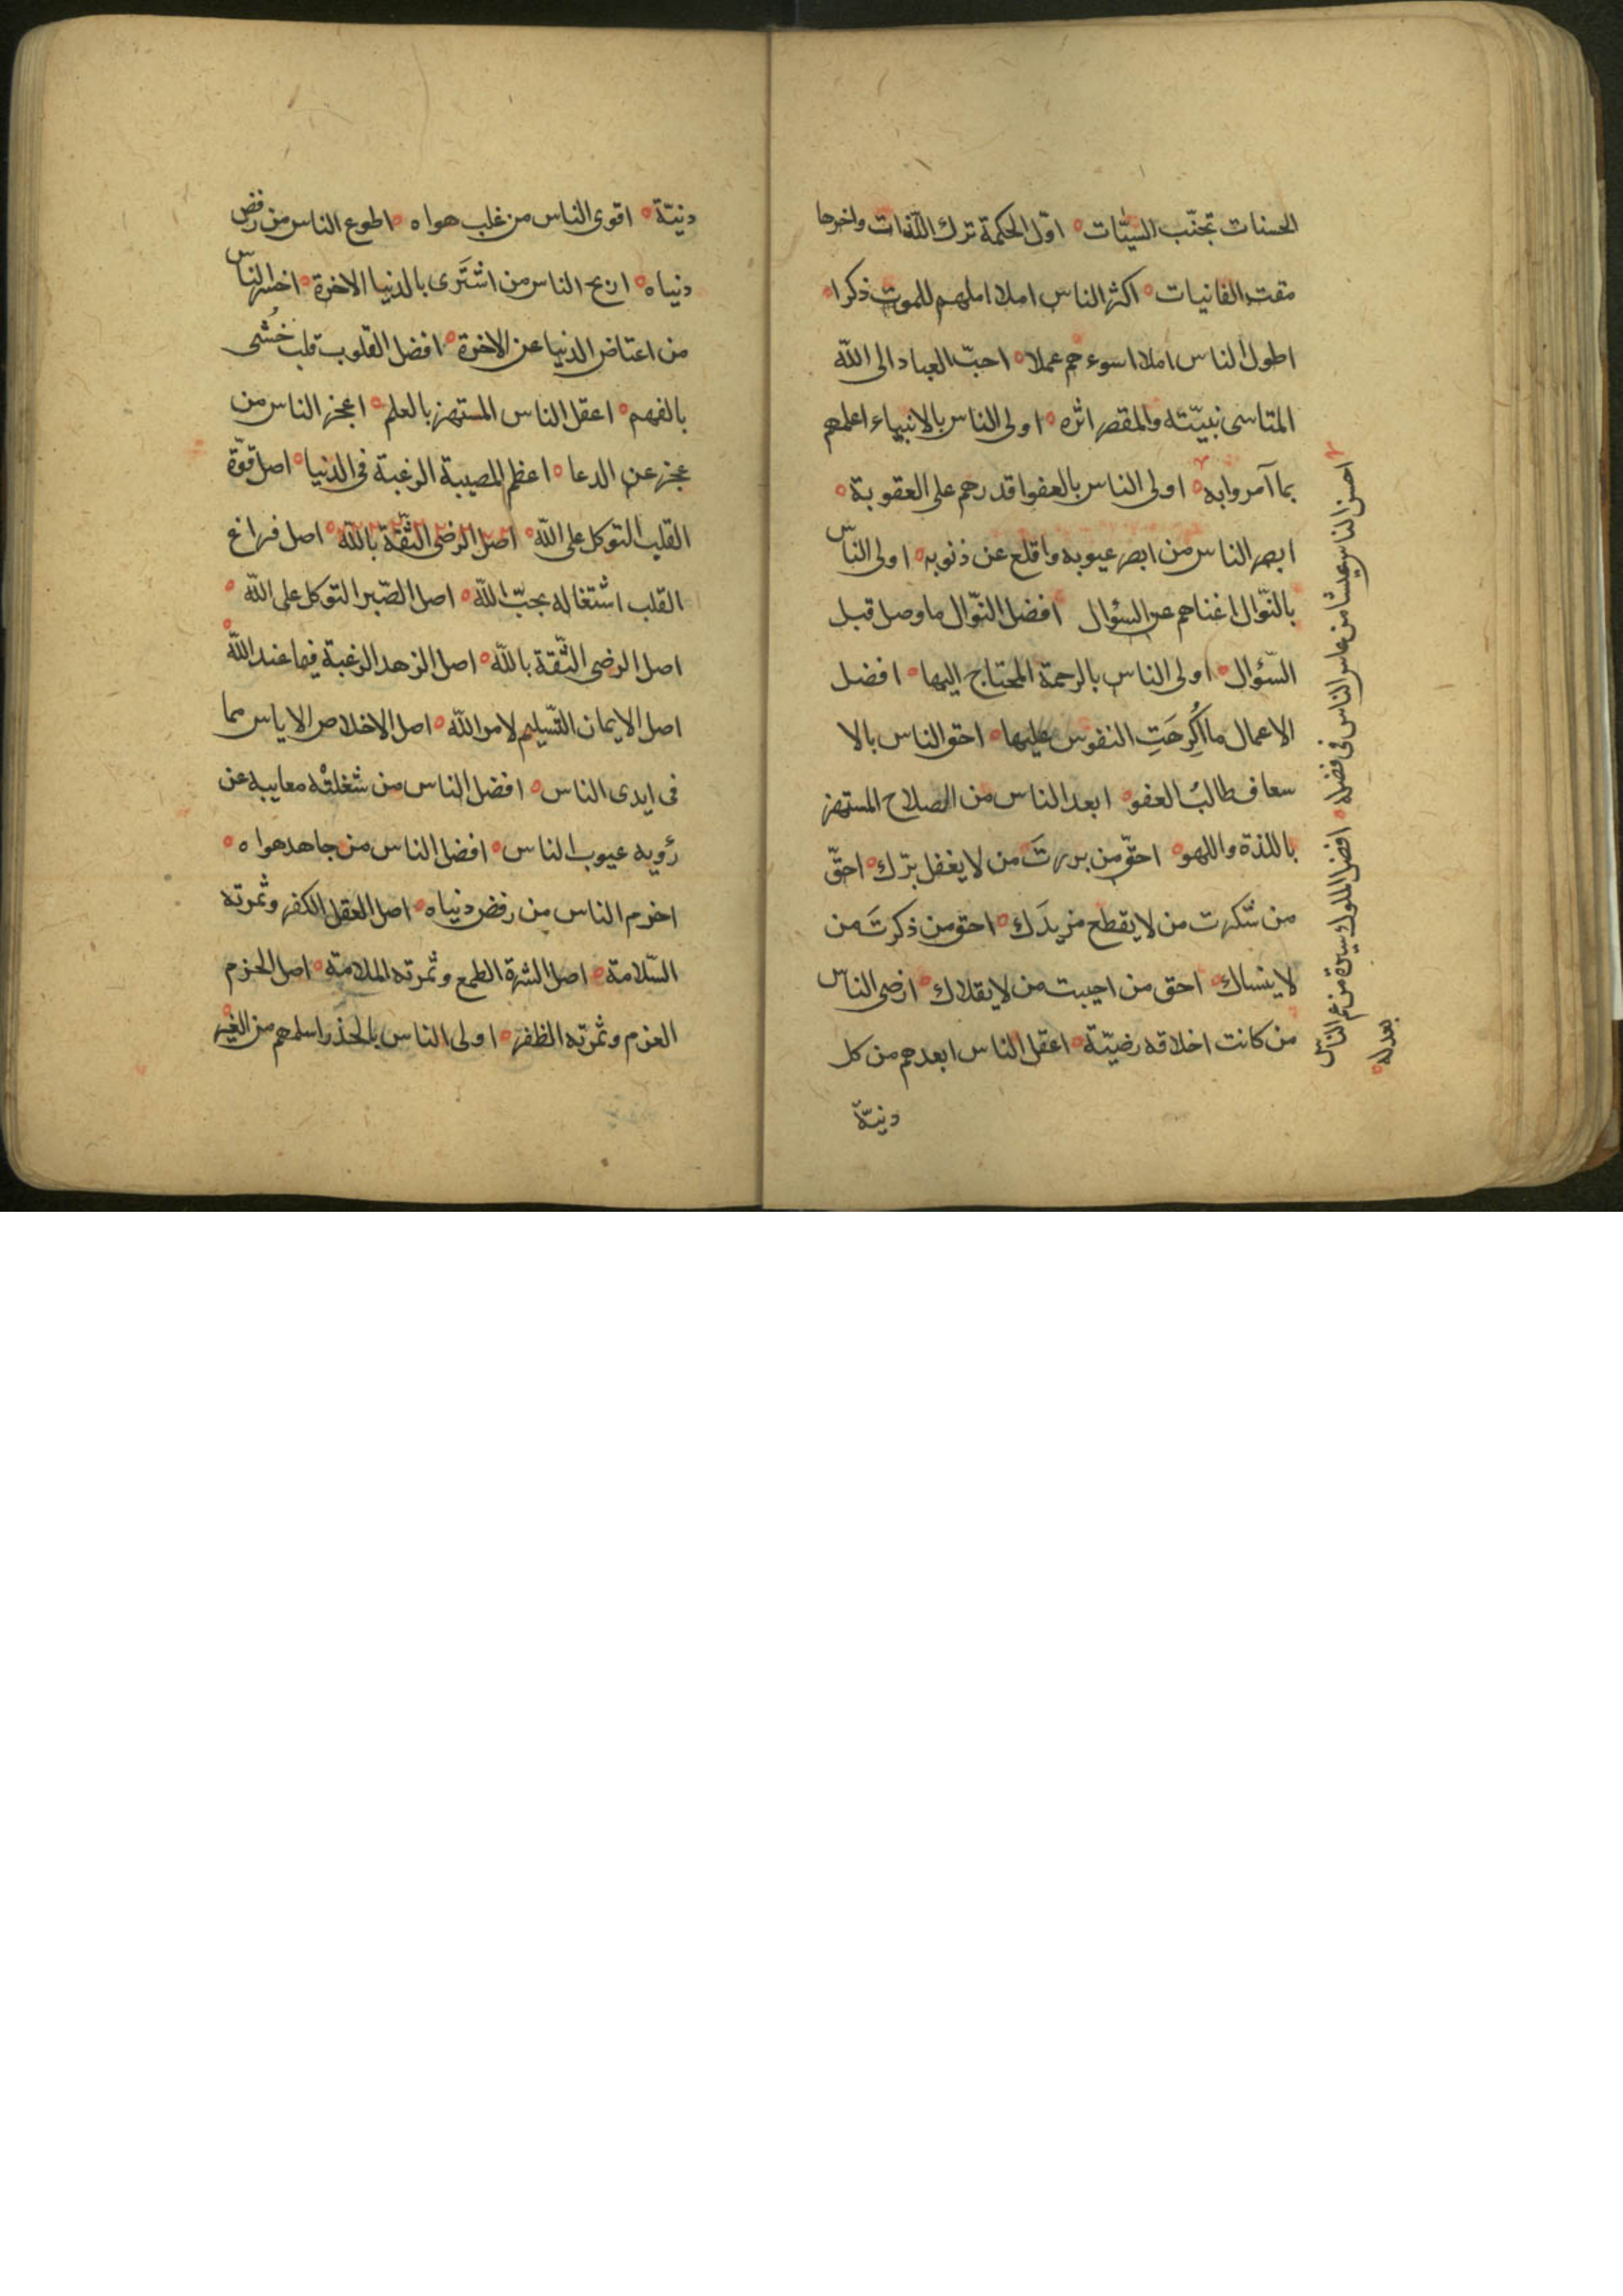 الحسنات تجنّب السيّئات ه اوّل الحكمة ترك اللّذات واخرها
مقت الفانيات ه اكثر الناس املا اقلهم للموت ذكرا ه
اطول الناس املا اسوءهم عملا ه احبّ العباد الى اللّه
المتاسى نبيّته والمقص اثره ه اولى الناس بالانبياء اعلمهم
بما آمروا به ه اولى الناس بالعفو اقدرهم على العقوبة ه
ابصر الناس من ابصر عيوبه واقلع عن ذنوبه ه اولى النّاس
بالنّوال اغناهم عن السؤال افضل النّوال ما وصل قبل
السّئوال ه اولى الناس بالرحمة المحتاج اليها ه افضل
الاعمال ما اُكرِهَتِ النفوس عليها ه احق الناس بالا
سعاف طالبُ العفو ه ابعد الناس من الصلاح المستهز
باللذة واللهو ه احقّ من بررتَ من لا يغفل برّك ه احقّ
من شكرت من لا يقطع مزيدَك ه احق من ذكرتَ من
لا ينساك ه احق من احببت من لا يقلاك ه ارضى الناس
من كانت اخلاقه رضيّة ه اعقل الناس ابعدهم من كل
دنيّة
احسن الناس عيشا من عاش الناس فى فضله ه افضل الملوك سيرة من عم النّاس
بعدله ه
دنيّة ه اقوى الناس من غلب هواه ه اطوع الناس من رفض
دنياه ه اربح الناس من اشتَرى بالدنيا الاخرة ه اخسر النّاس
من اعتاض الدنيا عن الاخرة ه افضل القلوب قلب حُشى
بالفهم ه اعقل الناس المستهز بالعلم ه اعجز الناس من
عجز عن الدعا ه اعظم المصيبة الرغبة فى الدنيا ه اصل قوّة
القلب التوكل على اللّه ه اصل الرضى الثّقة باللّه ه اصل فراغ
القلب اشتغاله بحبّ اللّه ه اصل الصّبر التوكل على اللّه ه
اصل الرضى الثّقة باللّه ه اصل الزهد الرغبة فيما عند اللّه ه
اصل الايمان التّسليم لامر اللّه ه اصل الاخلاص الاياس مما
فى ايدى الناس ه افضل الناس من شغلتْه معايبه عن
رؤيه عيوب الناس ه افضل الناس من جاهد هواه ه
احزم الناس من رفض دنياه ه اصل العقل الكفر وثمرته
السّلامة ه اصل الشره الطمع وثمرته الملامة ه اصل الحزم
العزم وثمرته الظفر ه اولى الناس بالحذر اسلمهم من الغير ه